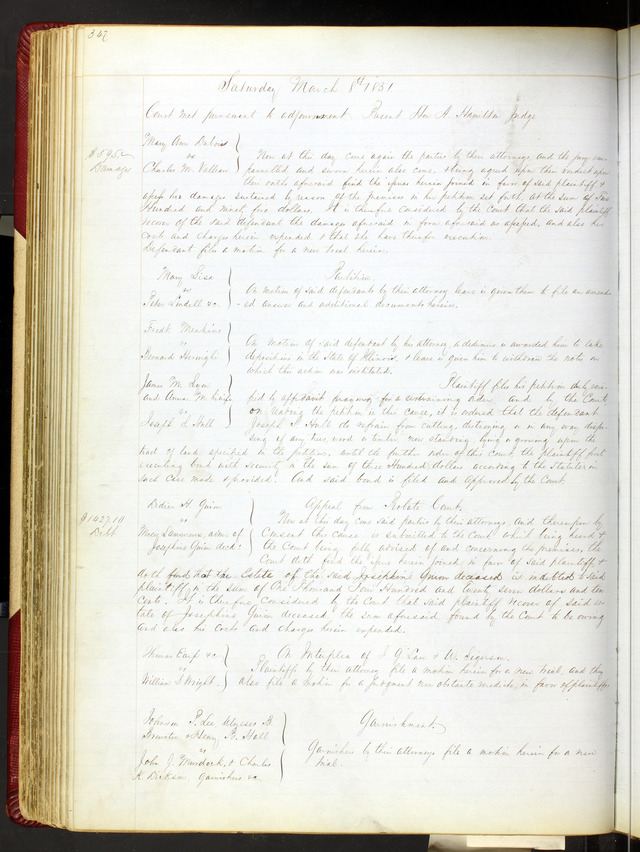 347
Saturday March 8th 1851
Court met pursuant to adjournment Present Hon A Hamilton Judge
Mary Ann Dubois
vs
Charles M. Valleau
$595.-
Damages
Now at this day come again the parties by their attorneys and the jury em-
panneled and sworn herein also come, & being agreed upon their verdict upon
their oaths aforesaid find the issues herein joined in favor of said plaintiff, &
assess her damages sustained by reason of the premises in her petition set forth, at the sum of
Hundred and ninety five dollars. It is therefore considered by the Court that the said plaintiff
recover of the said defendant the damages aforesaid in form aforesaid as assessed, and also her
costs and charges herein expended & that she have therefor execution.
Defendant files a motion for a new trial herein.
Mary Sisa
vs
Peter Lindell &c.
Partition
On motion of said defendants by their attorney leave is given them to file an amend-
-ed answer and additional documents herein.
Fredk
vs
Bernard
On motion of said defendant by his attorney, a dedimus is awarded him to take
depositions in the State of Illinois & leave is given him to withdraw the note on
which this action was instituted.
James M. Lynn
and Anna M. his wife
vs
Joseph L Hall
Plaintiff files his petition duly veri-
fied by affidavit praying for a restraining order and by the Court
on reading the petition in this cause, it is ordered that the defendant
Joseph L Hall do refrain from cutting, destroying or in any way dispo-
sing of any tree, wood or timber now standing lying or growing upon the
tract of land specified in the petition, until the further order of this court, the plaintiff first
executing bond with security in the sum of three Hundred dollars according to the Statute in
such case made & provided. And said bond is filed and approved by the Court.
$1427.10
Debt
H. Guion
vs
Mary admx of
Josephus Guion decd.
Appeal from Probate Court.
Now at this day come said parties by their attorneys and thereupon by
Consent this cause is submitted to the Court which being heard &
the Court being fully advised of and concerning the premises, the
Court doth find the issue herein joined in favor of said plaintiff &
doth find that the Estate of the said Josephus Guion deceased is indebted to said
plaintiff in the sum of One Thousand Four Hundred and twenty seven dollars and ten
cents. It is therefore considered by the Court that said plaintiff recover of said es-
tate of Josephus Guion deceased the sum aforesaid found by the Court to be owing
and also his costs and charges herein expended.
Thomas &c
vs
William S Wright.
On Interplea of & W.
Plaintiffs by their attorney file a motion herein for a new trial, and they
also file a motion for a judgment non obstante verdicto, in favor of plaintiffs
Johnson P. Lee Ulysses B
& Henry B. Hall
vs
John J. Murdock, & Charles
K. Dickson garnishees &c
Garnishment
Garnishees by their attorneys file a motion herein for a new
trial.